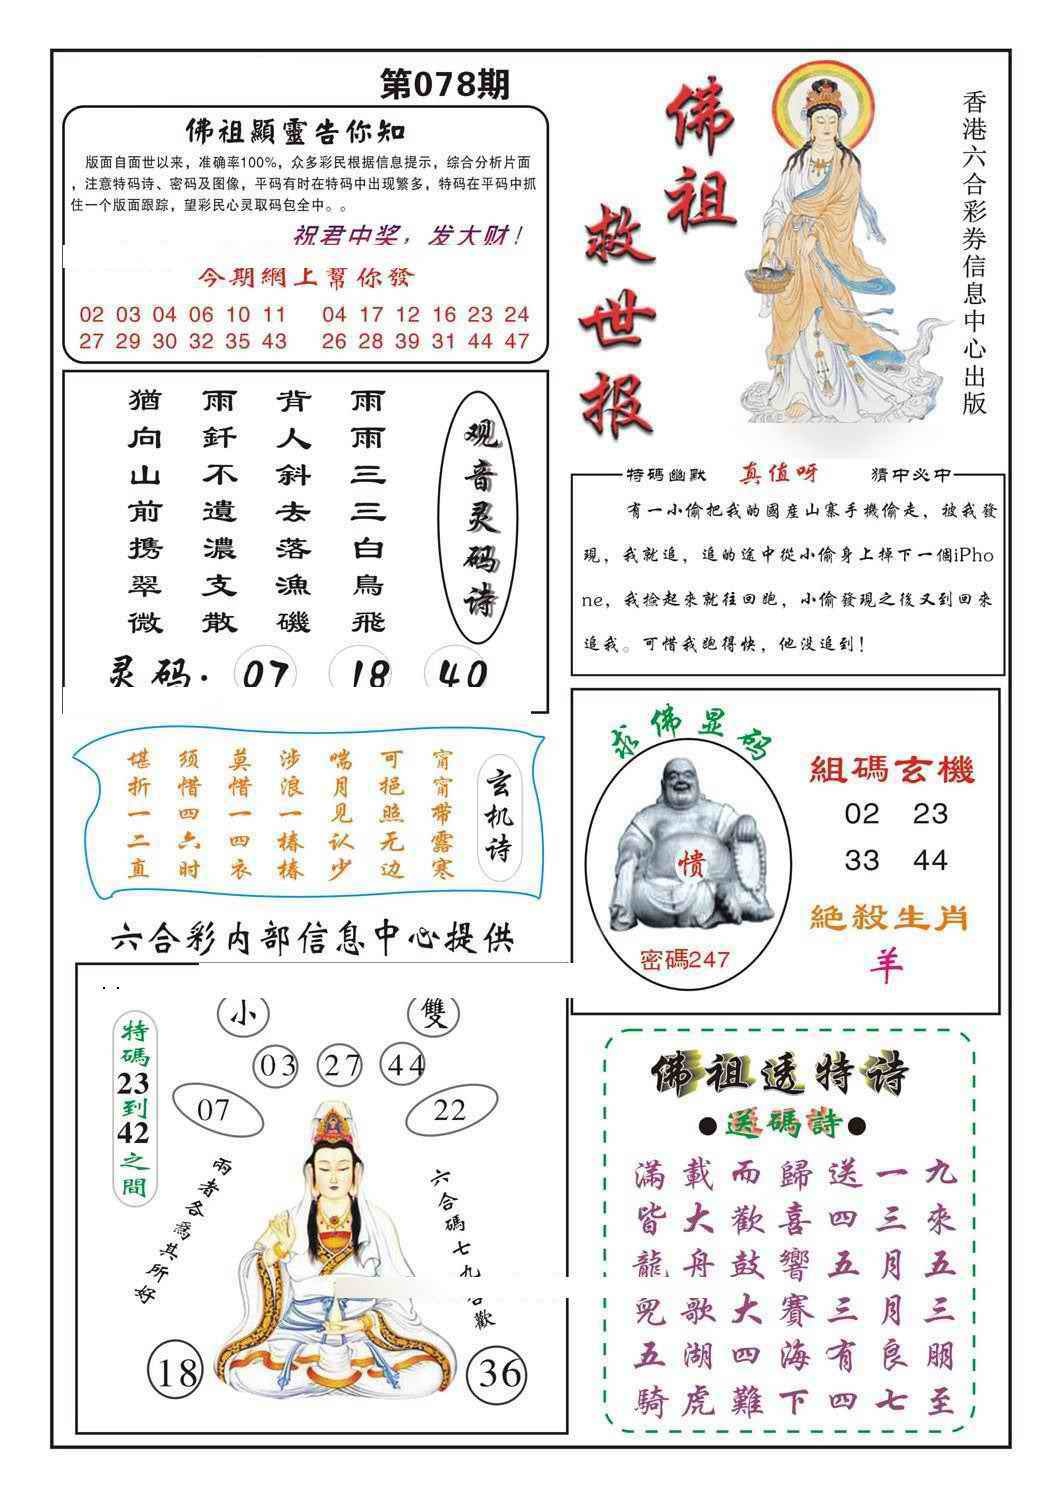 第078期
佛祖顯靈告你知
版面自面世以来，准确率100%，众多彩民根据信息提示，综合分析片面
，注意特码诗、密码及图像，平码有时在特码中出现繁多，特码在平码中抓
住一个版面跟踪，望彩民心灵取码包全中。。
祝君中奖，发大财！
今期網上幫你發
02 03 04 06 10 11 04 17 12 16 23 24
27 29 30 32 35 43 26 28 39 31 44 47
佛祖
救世报
香港六合彩券信息中心出版
观音灵码诗
雨雨三三白鳥飛
背人斜去落漁磯
雨釺不遺濃支散
猶向山前携翠微
灵码. 07 18 40
特碼幽默 真值呀 猜中必中
有一小偷把我的國産山寨手機偷走，被我發
現，我就追，追的途中從小偷身上掉下一個iPho
ne，我捡起來就往回跑，小偷發現之後又到回來
追我。可惜我跑得快，他没追到！
玄机诗
甯甯带露寒
可挹照无边
喘月见认少
涉浪一椿椿
莫惜一四衣
须惜四六时
堪折一二直
求佛显码
愦
密碼247
組碼玄機
02 23
33 44
絕殺生肖
羊
六合彩内部信息中心提供
小 雙
03 27 44
07 22
特碼23到42之間
兩者各爲其所好
六合碼七九
歡
18 36
佛祖透特诗
●送碼詩●
滿載而歸送一九
皆大歡喜四三來
龍舟鼓響五月五
兜歌大賽三月三
五湖四海有良朋
騎虎難下四七至